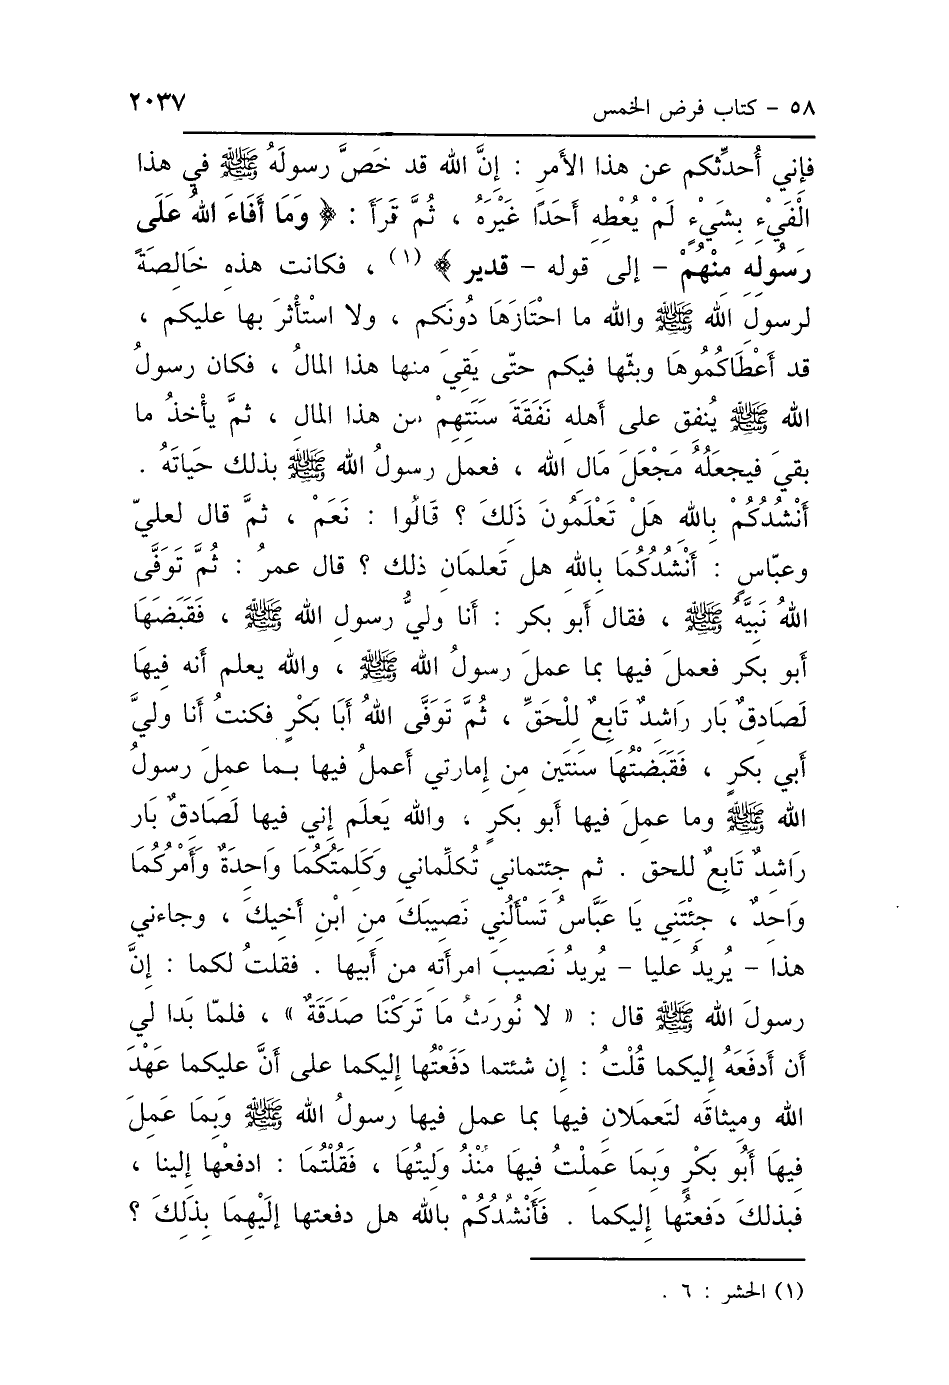 ٥٨ - كتاب فرض الخمس ٢٠٣٧
فإني أُحدِّثكم عن هذا الأَمرِ : إنَّ الله قد خَصَّ رسولَهُ ﷺ في هذا
الْفَيْءِ بِشَيْءٍ لَمْ يُعْطِهِ أَحَدًا غَيْرَهُ ، ثُمَّ قَرَأَ : ﴿ وَمَا أَفَاءَ اللهُ عَلَى
رَسُولِهِ مِنْهُمْ - إلى قوله - قدير ﴾ (١) ، فكانت هذه خَالِصَةً
لرسولِ الله ﷺ والله ما احْتَازَهَا دُونَكم ، ولا استَأْثرَ بها عليكم ،
قد أَعْطَاكُمُوهَا وبثّها فيكم حتّى بَقِيَ منها هذا المالُ ، فكان رسولُ
الله ﷺ يُنفق على أهله نَفَقَةَ سَنَتِهِمْ من هذا المال ، ثمَّ يأْخذُ ما
بقيَ فيجعلُهُ مَجْعَلَ مَالِ الله ، فعمل رسولُ الله ﷺ بذلك حَيَاتَهُ .
أَنْشُدُكُمْ بِالله هَلْ تَعْلَمُونَ ذَلِكَ ؟ قَالُوا : نَعَمْ ، ثمَّ قال لعليّ
وعبّاسٍ : أَنْشُدُكُمَا بِالله هل تَعلمَانِ ذلك ؟ قال عمرُ : ثُمَّ تَوَفَّى
اللهُ نَبِيَّهُ ﷺ ، فقال أبو بكر : أنا وليُّ رسولِ الله ﷺ ، فَقَبَضَهَا
أبو بكر فعملَ فيها بما عملَ رسولُ الله ﷺ ، والله يعلم أنه فيها
لَصَادِقٌ بَار رَاشِدٌ تَابِعٌ لِلْحَقِّ ، ثُمَّ تَوَفَّى اللهُ أَبَا بَكْرٍ فكنتُ أنا وليَّ
أبي بكرٍ ، فَقَبَضْتُهَا سَنَتَين من إمارتي أَعملُ فيها بما عملَ رسولُ
الله ﷺ وما عملَ فيها أبو بكرٍ ، والله يَعلَم إني فيها لَصَادِقٌ بَار
رَاشِدٌ تَابِعٌ للحق . ثم جئتماني تُكلِّماني وَكَلِمَتُكُمَا وَاحِدَةٌ وَأَمْرُكُمَا
وَاحدٌ ، جِئْتَنِي يَا عَبَّاسُ تَسْأَلُنِي نَصِيبَكَ مِنِ ابْنِ أَخيكَ ، وجاءني
هذا - يُرِيدُ عليا - يُرِيدُ نَصيبَ امرأَته من أَبيها . فقلتُ لكما : إنَّ
رسولَ الله ﷺ قال : « لا نُورَثُ مَا تَرَكْنَا صَدَقَةٌ » ، فلمّا بَدا لي
أن أَدفَعَهُ إليكما قُلْتُ : إن شئتما دَفَعْتُها إليكما على أنَّ عليكما عَهْدَ
الله وميثاقَه لتَعمَلانِ فيها بما عمل فيها رسولُ الله ﷺ وَبِمَا عَمِلَ
فِيهَا أَبُو بَكْرٍ وَبِمَا عَمِلْتُ فِيهَا مُنْذُ وَلِيتُهَا ، فَقُلْتُمَا : ادفعْها إلينا ،
فبذلكَ دَفعتُها إليكما . فَأَنْشُدُكُمْ بالله هل دفعتها إِلَيْهِمَا بِذَلِكَ ؟
(١) الحشر : ٦ .